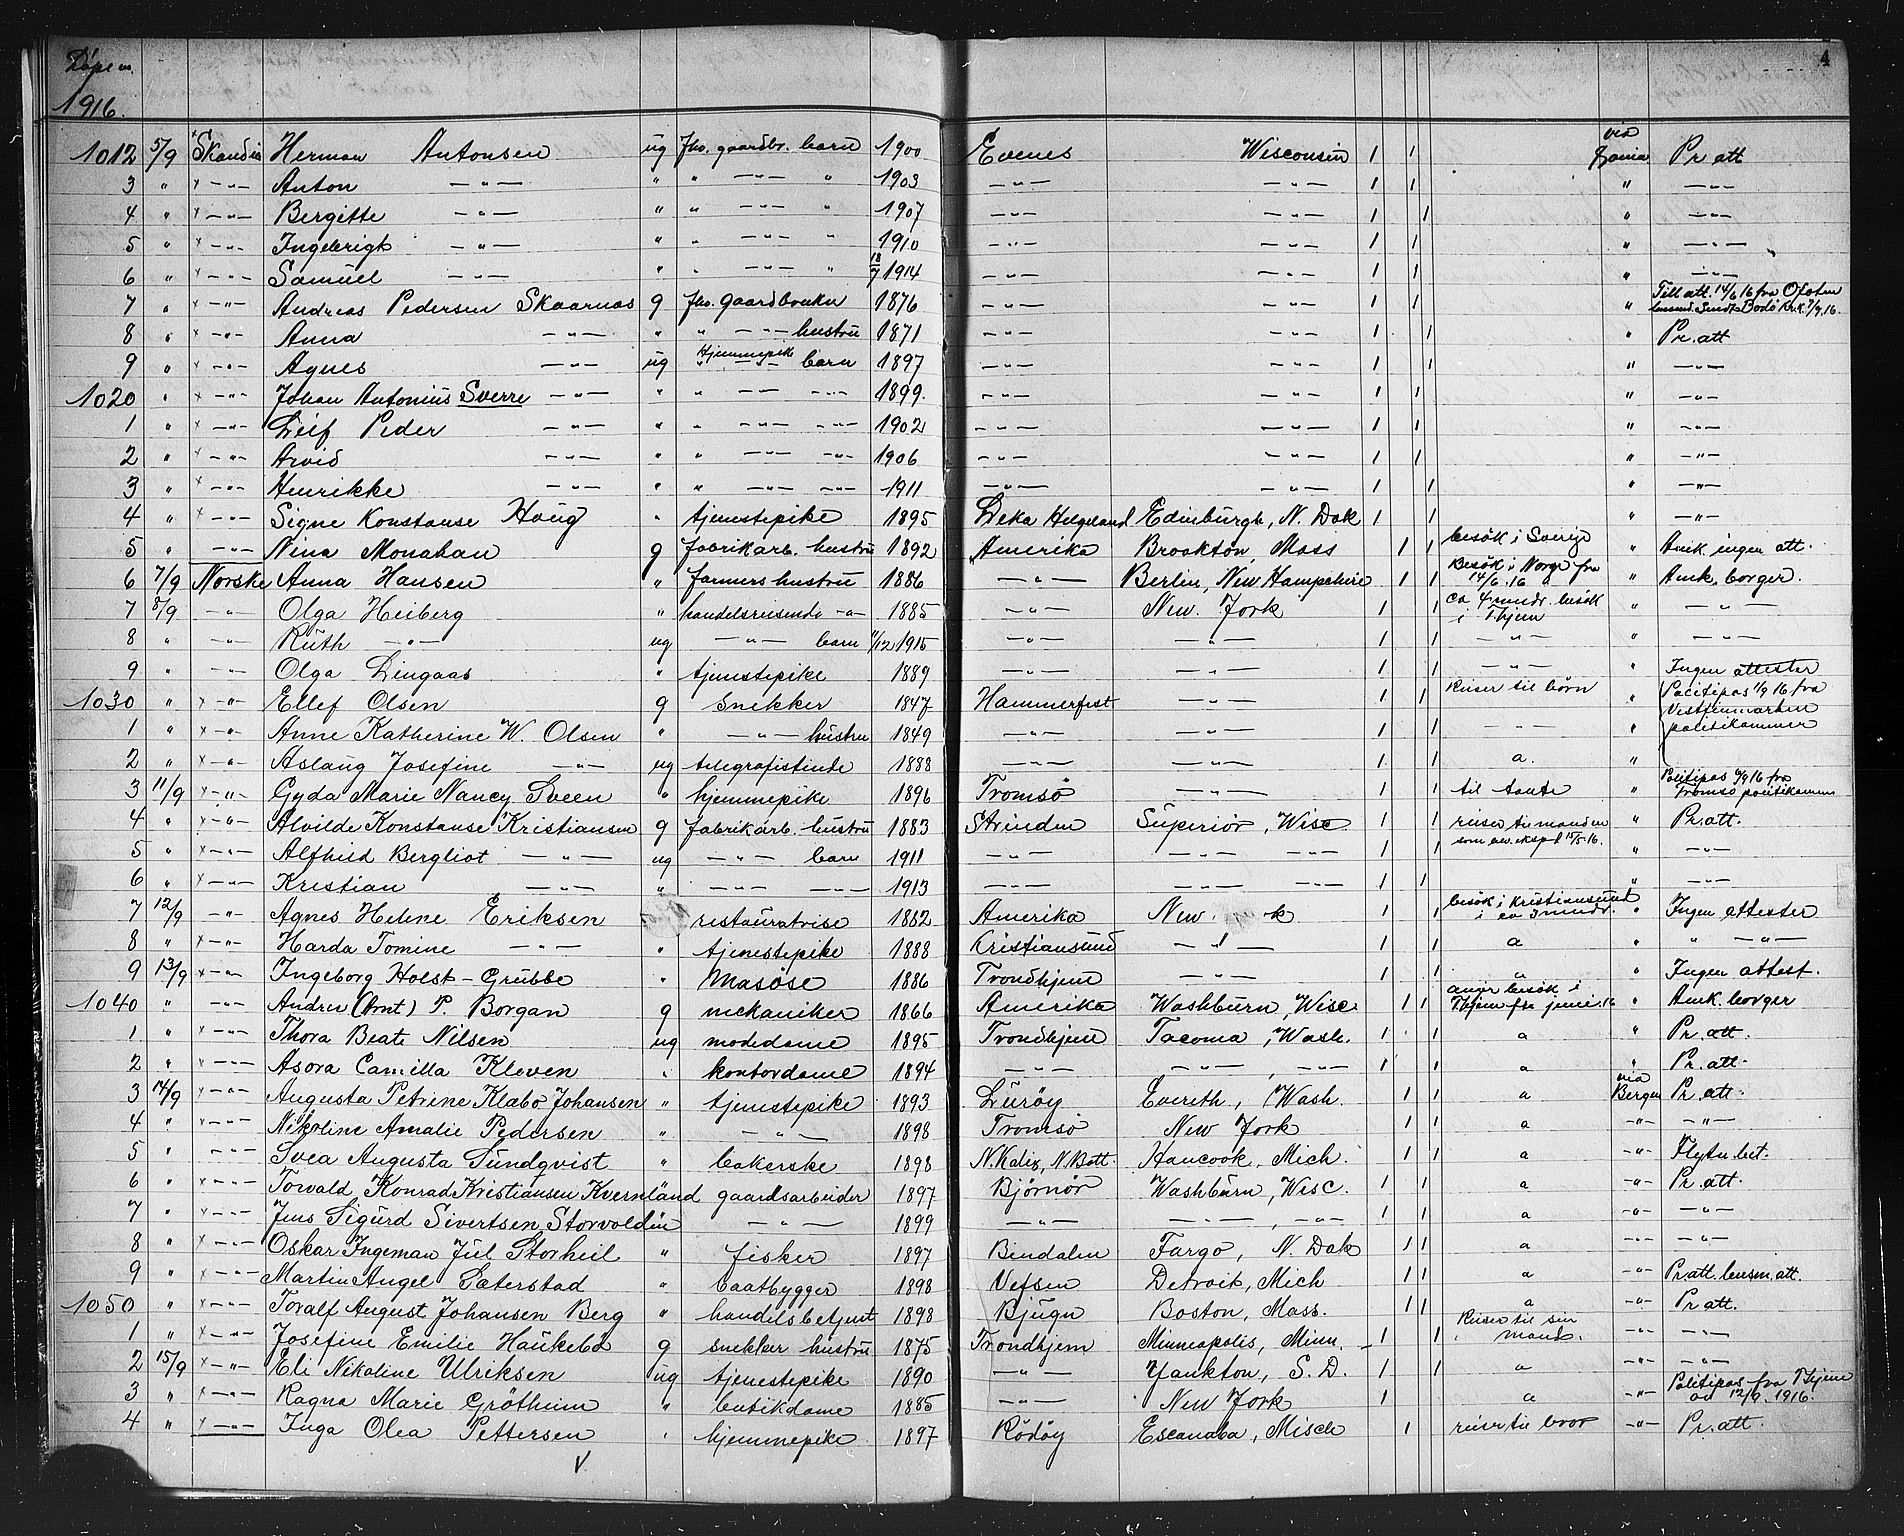 Løpe n.
1916.
4
1012 5/9 Skandia Herman Antonsen ug fhv. gaardbr. barn 1900 Evenes Wisconsin 1 1 via Grania Pr. att
3 " x —"— Anton —"— " " —"— " 1903 —"— —"— 1 1 " —"—
4 " x —"— Bergitte —"— " " —"— " 1907 —"— —"— 1 1 " —"—
5 " x —"— Ingebrigt —"— " " —"— " 1910 —"— —"— 1 1 " —"—
6 " x —"— Samuel —"— " " —"— " 18/7 1914 —"— —"— 1 1 " —"—
7 " x —"— Andreas Pedersen Skaarnes g fhv. gaardbruker 1876 —"— —"— 1 1 " Till. att. 14/6 16 fra Ofoten lensmd. Sendt Bodö Br.k. 7/9.16.
8 " x —"— Anna —"— " " —"— hustru 1871 —"— —"— 1 1 " Pr. att
9 " x —"— Agnes —"— ug Hjemmepike —"— barn 1897 —"— —"— 1 1 " —"—
1020 " x —"— Johan Antonius Sverre —"— " " —"— —"— 1899. —"— —"— 1 1 " —"—
1 " x —"— Leif Peder —"— " " —"— —"— 1902 —"— —"— 1 1 " —"—
2 " x —"— Arvid —"— " " —"— —"— 1906 —"— —"— 1 1 " —"—
3 " x —"— Henrikke —"— " " —"— —"— 1911 —"— —"— 1 1 " —"—
4 " x —"— Signe Konstanse Haug " tjenestepike 1895 Leka Helgeland Edinburgh, N. Dak 1 1 " —"—
5 " —"— Nina Monahan g fabrikarb. hustru 1892 Amerika Brockton, Mass 1 1 besök i Sverige " Amk. ingen att.
6 7/9 Norske Anna Hansen " farmers hustru 1886 —"— Berlin, New Hampshire 1 1 Besök i Norge fra 14/6.16 " Amk. borger.
7 8/9 —"— Olga Heiberg " handelsreisende —"— 1885 —"— New. York 1 1 ca 4 mndr. besök i Thjem " —"—
8 " —"— Ruth —"— ug —"— barn 11/12 1915 —"— —"— 1 1 —"— " —"—
9 " —"— Olga Lingaas " tjenestepike 1889 —"— —"— 1 1 —"— " Ingen attester
1030 " x —"— Ellef Olsen g snekker 1847 Hammerfest —"— 1 1 Reiser til børn " Politipas 1/9 16 fra Vestfinmarken politikammer
1 " x —"— Anne Katherine W. Olsen " —"— hustru 1849 —"— —"— 1 1 —"— "
2 " x —"— Aslaug Josefine —"— ug telegrafistinde 1888 —"— —"— 1 1 a. "
3 11/9 x —"— Gyda Marie Nancy Sveen " hjemmepike 1896 Tromsö —"— 1 1 til tante " Politipas 6/9 16 fra Tromsö politikammer
4 " x —"— Alvilde Konstanse Kristiansen g fabrikarb. hustru 1883 Strinden Superiör, Wisc. 1 1 reiser til manden " Pr. att.
5 " x —"— Alfhild Bergliot —"— ug —"— barn 1911 —"— —"— —"— 1 1 som ev. eksp.d 15/5.16. " —"—
6 " x —"— Kristian —"— " —"— —"— 1913 —"— —"— —"— 1 1 " —"—
7 12/9 —"— Agnes Helene Eriksen restauratrise 1882 Amerika New k 1 1 besök i Kristiansund i ca 3 mndr. " Ingen attester
8 " x —"— Harda Tomine —"— " tjenestepike 1888 Kristiansund —"— 1 1 a " " —"—
9 13/9 x —"— Ingeborg Holst-Grubbe " Masöse 1886 Trondhjem —"— 1 1 a " Ingen attest.
1040 " —"— Andrew (Arnt) P. Borgan g mekaniker 1866 Amerika Washburn, Wisc 1 1 angir besök i Thjem fra juni. 16 " Amk. borger
1 " x —"— Thora Beate Nilsen ug modedame 1895 Trondhjem Tacoma, Wash. 1 1 a " Pr. att.
2 " x —"— Asora Camilla Kleven " kontordame 1894 —"— —"—, —"— 1 1 a " Pr. att.
3 14/9 x —"— Augusta Petrine Klæbo Johansen " tjenestepike 1893 Luröy Evereth, Wash. 1 1 a via Bergen Pr. att.
4 " x —"— Nikoline Amalie Pedersen " —"— 1898 Tromsö New York 1 1 a —"— —"—
5 " —"— Svea Augusta Sundqvist " bakerske 1898 N. Kalix, N. Bott. Hancook, Mich. 1 1 a —"— Flytn. bet.
6 " x —"— Torvald Konrad Kristiansen Kvernland gaardsarbeider 1897 Bjørnör Washburn, Wisc. 1 1 a —"— Pr. att.
7 " x —"— Jens Sigurd Sivertsen Storvolden —"— 1899 —"— —"—, —"— 1 1 a —"— —"—
8 " x —"— Oskar Ingeman Jul Storheil " fisker 1897 Bindalen Fargo, N. Dak 1 1 a —"— —"—
9 " x —"— Martin Angel Sæterstad " baatbygger 1898 Vefsen Detroit, Mich 1 1 a —"— Pr. att. lensm. att.
1050 " x —"— Toralf August Johansen Berg " handelsbetjent 1898 Bjugn Boston, Mass. 1 1 a —"— Pr. att.
1 " x —"— Josefine Emilie Haukebö g snekker hustru 1875 Trondhjem Minneapolis, Minn. 1 1 Reiser til sin mand. —"— —"—
2 15/9 x —"— Eli Nikoline Ulriksen ug tjenestepike 1890 —"— Yankton, S. D. 1 1 a —"— —"—
3 " x —"— Ragna Marie Grötheim " butikdame 1885 —"— New York 1 1 a —"— Politipas fra Thjem av 12/9. 1916.
4 " x —"— Inga Olea Pettersen " hjemmepike 1897 Rödöy Escanaba, Misch 1 1 reiser til bror —"— Pr. att.
V